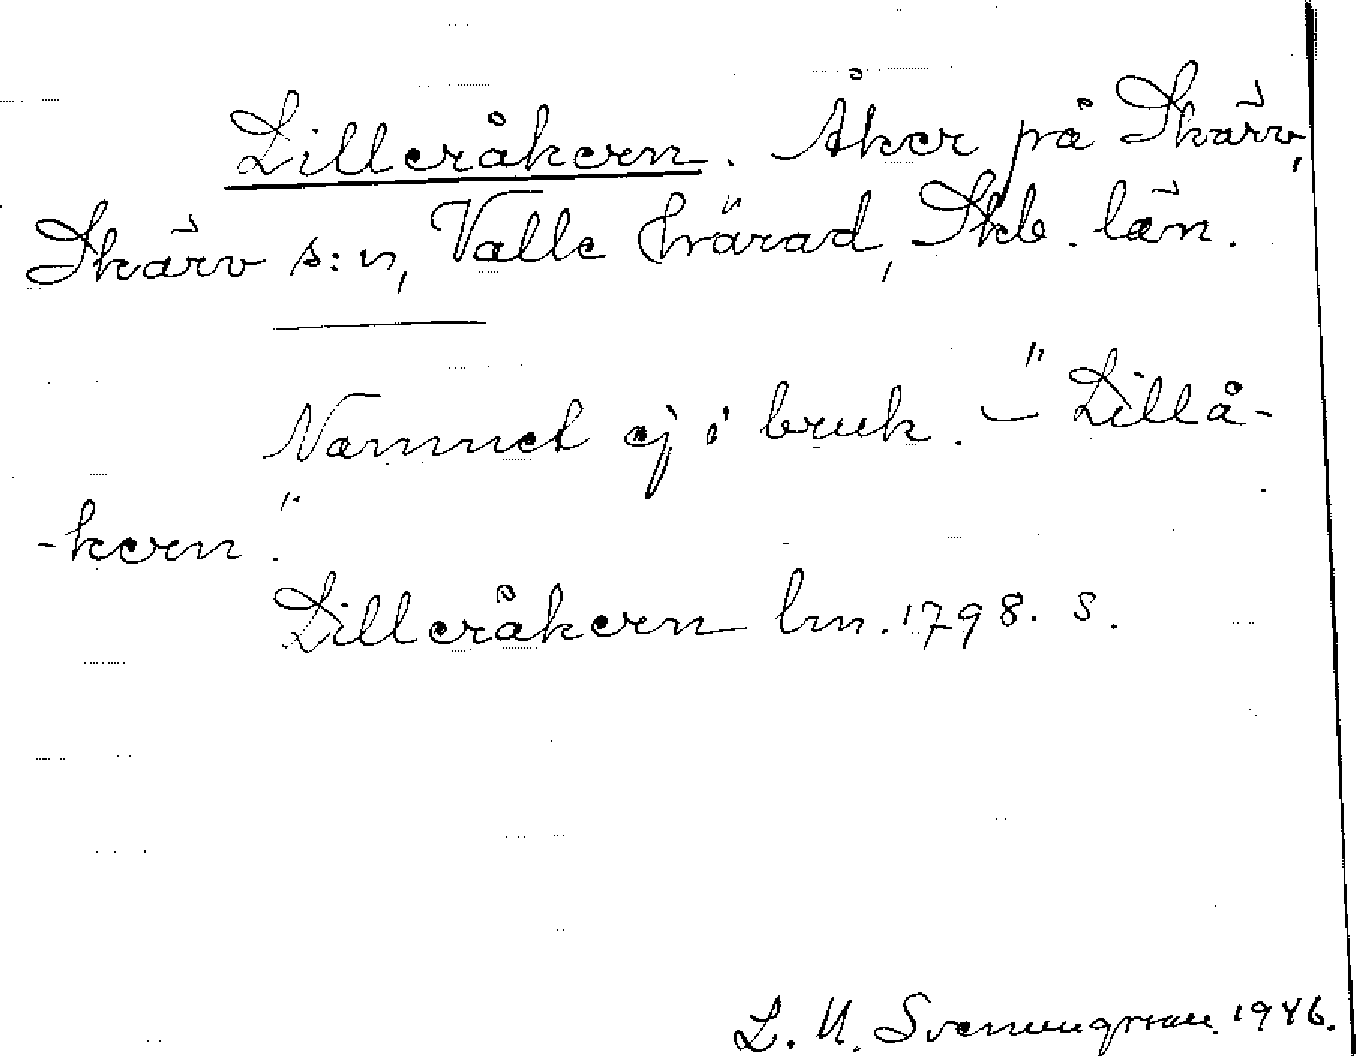 Lilleråkern. Åker på Skärv,
Skärv s:n, Valle härad, Skb. län.
Namnet ej i bruk. – "Lillå-
-kern."
Lilleråkern lm. 1798. S.
L. U. Svenungsson. 1946.